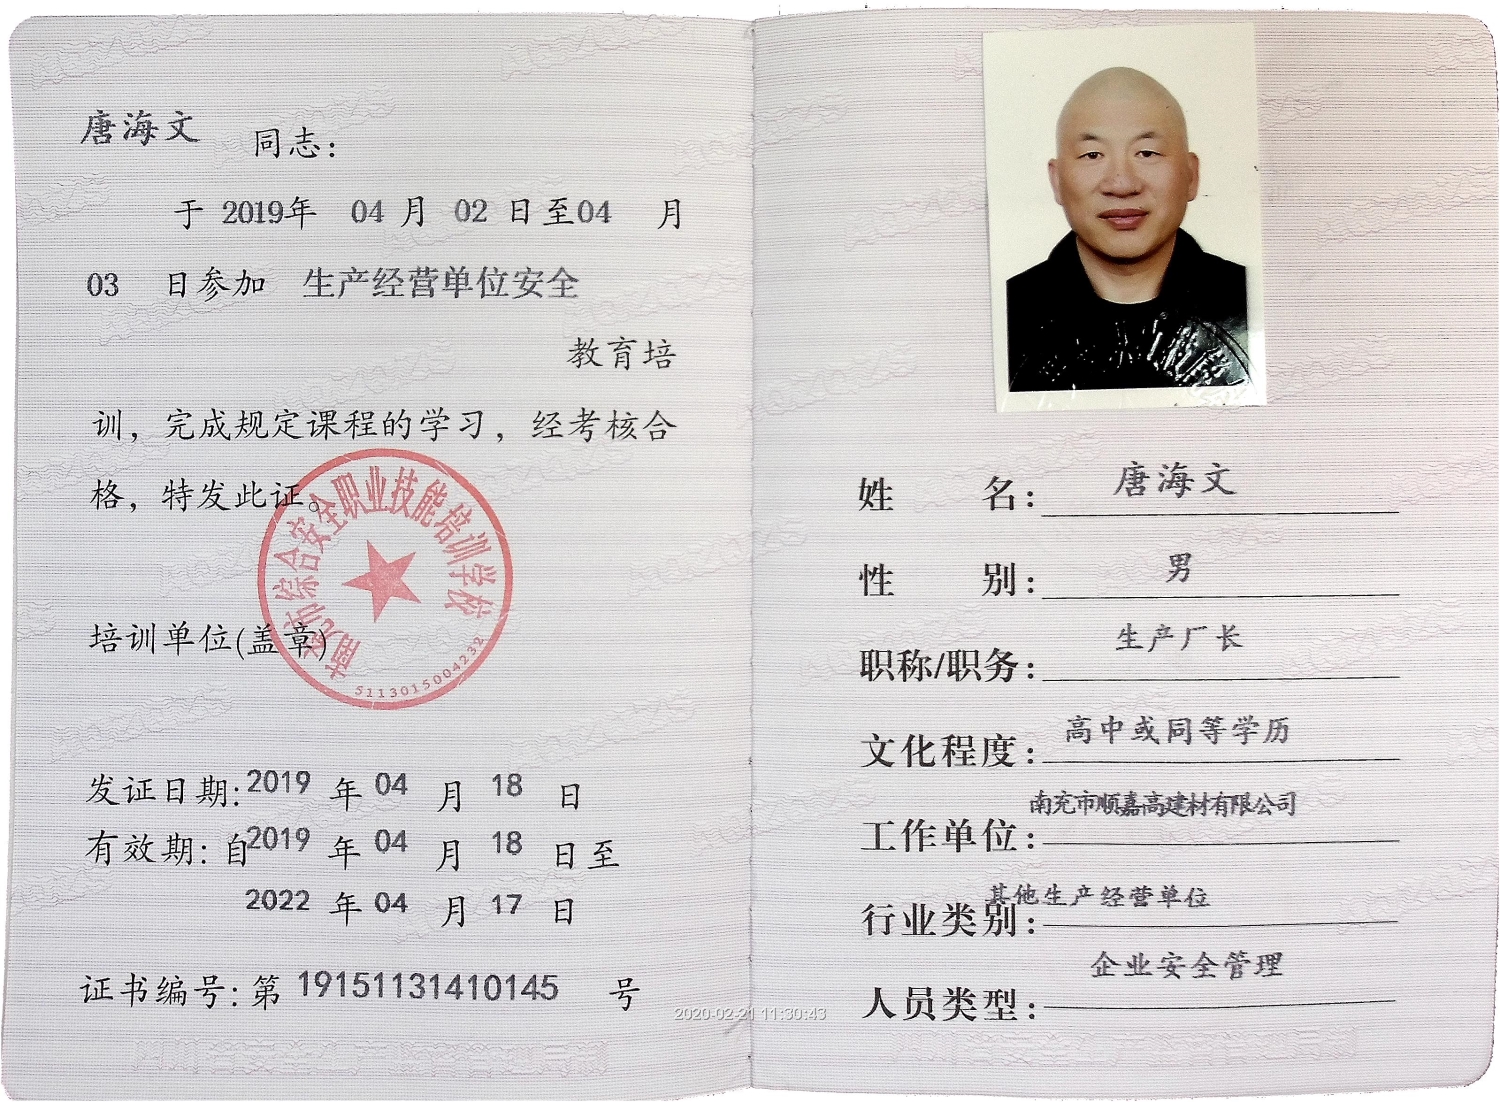 唐海文 同志：
于 2019年 04 月 02 日至04 月
03 日参加 生产经营单位安全
教育培
训，完成规定课程的学习，经考核合
格，特发此证。
南充市综合安全职业技能培训学校
培训单位(盖章)
5113015004232
发证日期:2019 年 04 月 18 日
有效期: 自2019 年 04 月 18 日至
2022 年 04 月 17 日
证书编号: 第 19151131410145 号
2020-02-21 11:30:43
姓 名: 唐海文
性 别: 男
职称/职务: 生产厂长
文化程度: 高中或同等学历
工作单位: 南充市顺嘉高建材有限公司
行业类别: 其他生产经营单位
人员类型: 企业安全管理